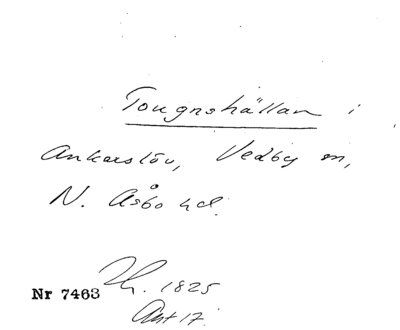 Tougnshällan i
Ankarslöv, Vedby sn,
N. Åsbo hd.
Nr 7463 Th. 1825
Ant 17.